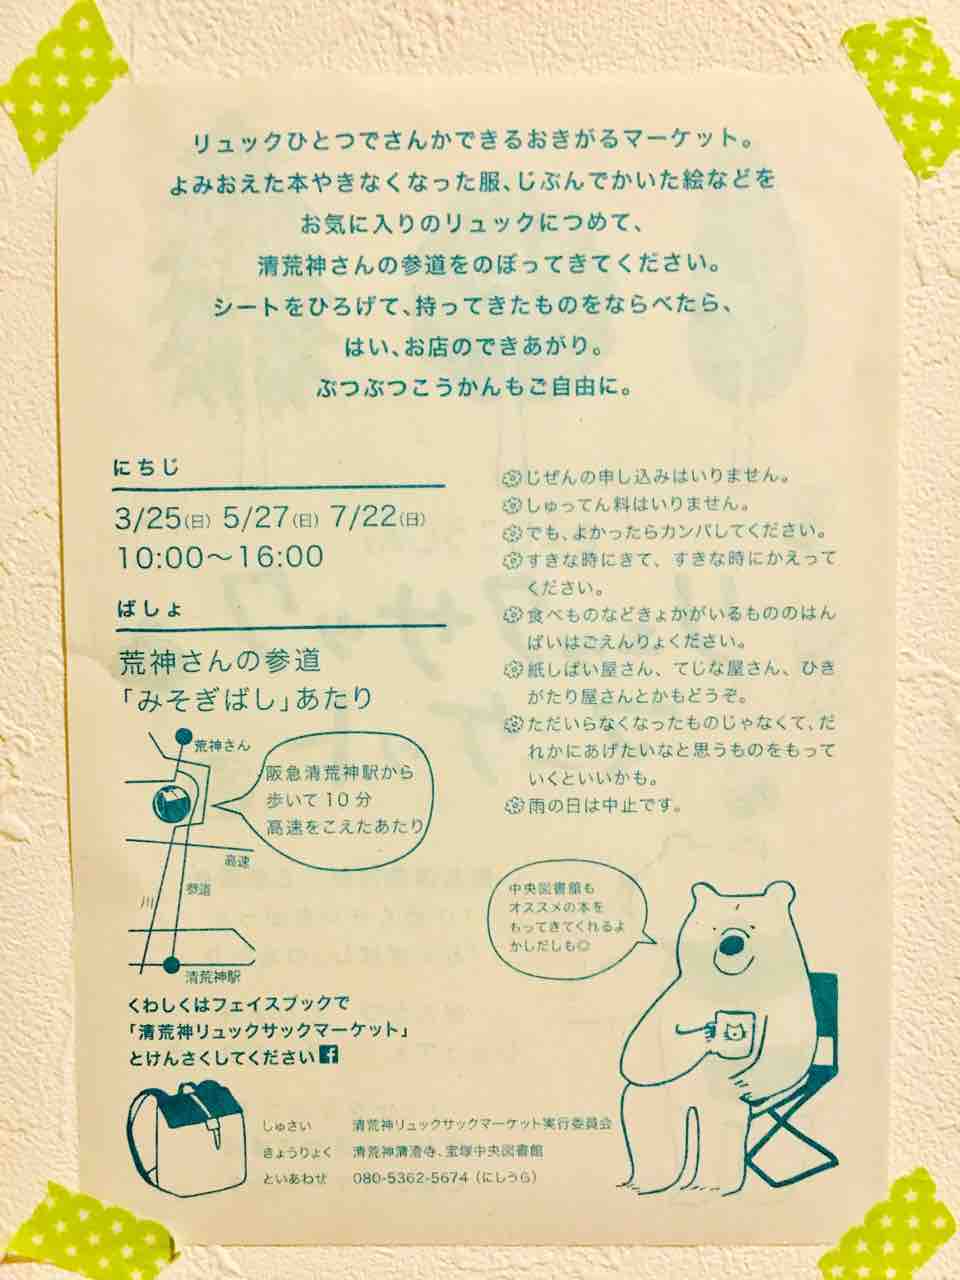 リュックひとつでさんかできるおきがるマーケット。
よみおえた本やきなくなった服、じぶんでかいた絵などを
お気に入りのリュックにつめて、
清荒神さんの参道をのぼってきてください。
シートをひろげて、持ってきたものをならべたら、
はい、お店のできあがり。
ぶつぶつこうかんもご自由に。
にちじ
3/25(日) 5/27(日) 7/22(日)
10:00〜16:00
ばしょ
荒神さんの参道
「みそぎばし」あたり
荒神さん
阪急清荒神駅から
歩いて10分
高速をこえたあたり
高速
参道
川
清荒神駅
くわしくはフェイスブックで
「清荒神リュックサックマーケット」
とけんさくしてください f
じぜんの申し込みはいりません。
しゅってん料はいりません。
でも、よかったらカンパしてください。
すきな時にきて、すきな時にかえって
ください。
食べものなどきょかがいるもののはん
ばいはごえんりょください。
紙しばい屋さん、てじな屋さん、ひき
がたり屋さんとかもどうぞ。
ただいらなくなったものじゃなくて、だ
れかにあげたいなと思うものをもって
いくといいかも。
雨の日は中止です。
中央図書館も
オススメの本を
もってきてくれるよ
かしだしも◎
しゅさい 清荒神リュックサックマーケット実行委員会
きょうりょく 清荒神清澄寺、宝塚中央図書館
といあわせ 080-5362-5674（にしうら）